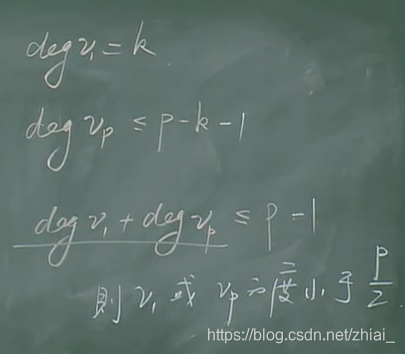 deg v₁ = k
deg vₚ ≤ p-k-1
deg v₁ + deg vₚ ≤ p-1
則 v₁ 或 vₚ 之度小于 p/2
https://blog.csdn.net/zhiai_